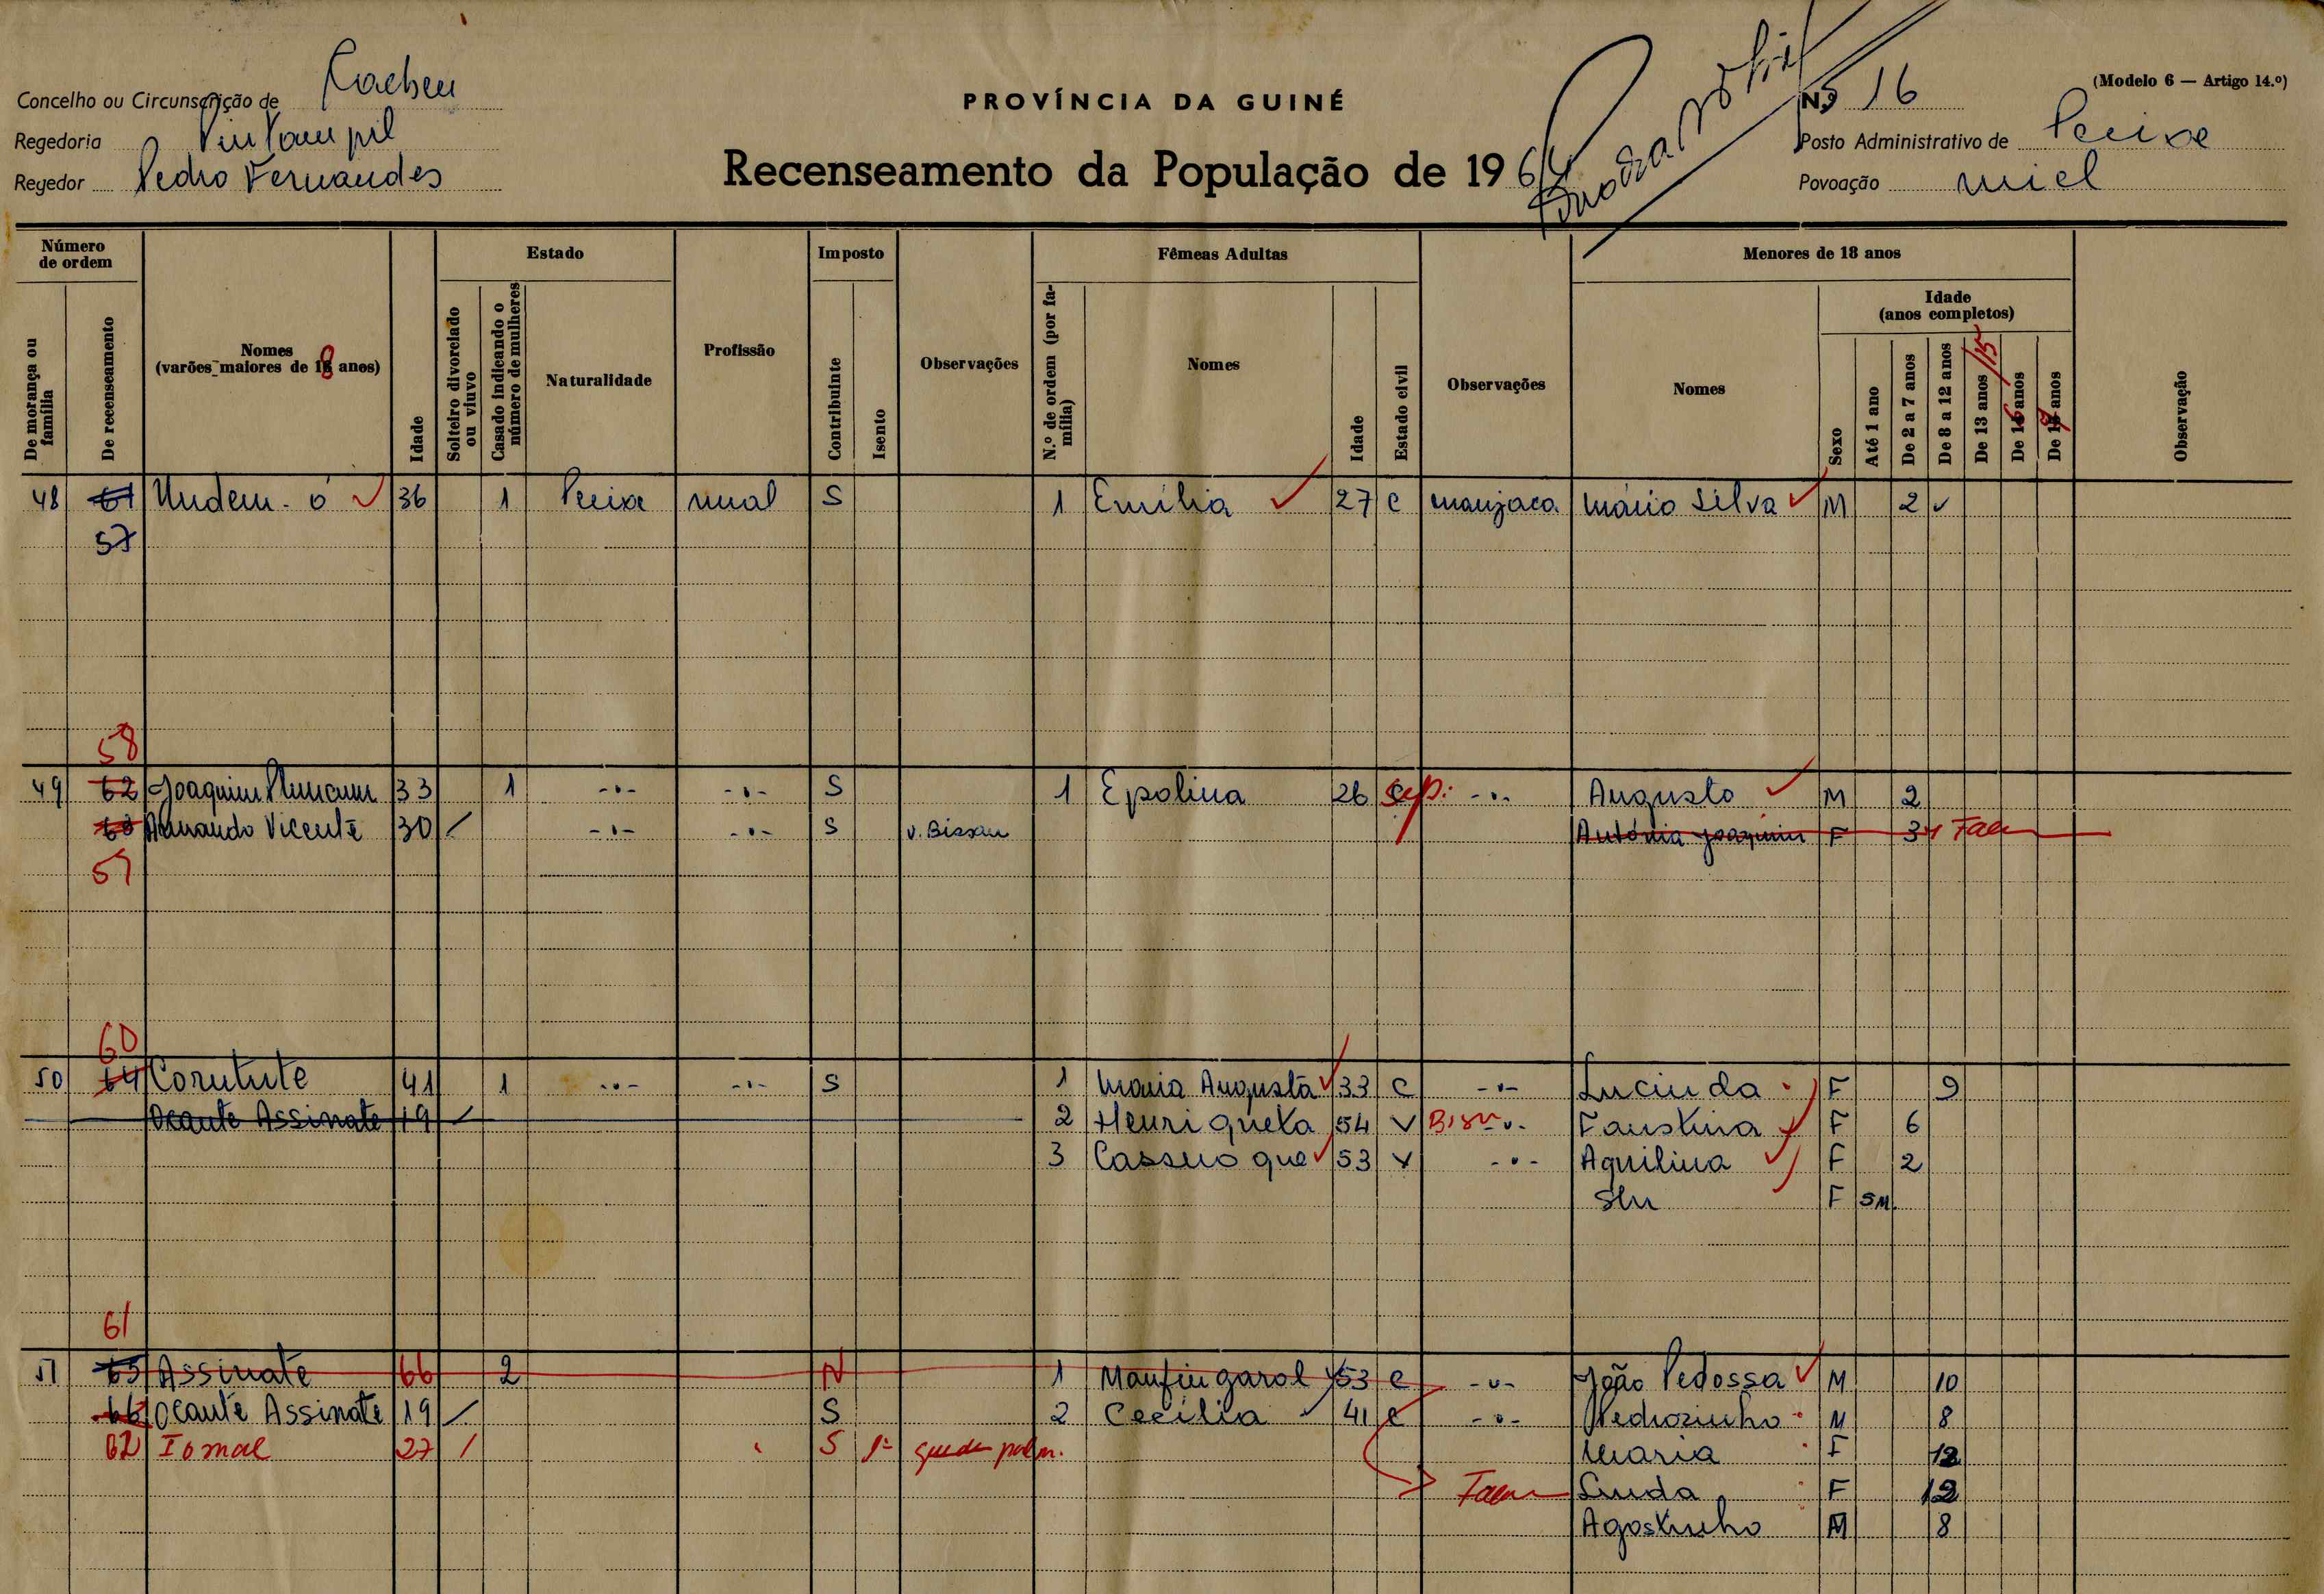 Concelho ou Circunscrição de Cacheu
Regedoria
Regedor Pedro Fernandes
PROVÍNCIA DA GUINÉ
Recenseamento da População de 1964
(Modelo 6 — Artigo 14.º)
Nº 16
Posto Administrativo de Pecixe
Povoação miel
Número de ordem
De morança ou família
De recenseamento
Nomes
(varões maiores de 18 anos)
Idade
Estado
Solteiro divorciado ou viuvo
Casado indicando o número de mulheres
Naturalidade
Profissão
Imposto
Contribuinte
Isento
Observações
Fêmeas Adultas
N.º de ordem (por família)
Nomes
Idade
Estado civil
Observações
Menores de 18 anos
Nomes
Sexo
Idade
(anos completos)
Até 1 ano
De 2 a 7 anos
De 8 a 12 anos
De 13 anos /15
De 16 anos
De 17 anos
Observação
48 61 Undem. ó 36 1 Pecixe rural S 1 Emília 27 C manjaca Mário Silva M 2
57
58
49 62 Joaquim 33 1 -"- -"- S 1 Epolina 26 sep. -"- Augusto M 2
63 Armando Vicente 30 / -"- -"- S v. Bissau Antónia Joaquim F 3 Falec
59
60
50 64 Corutute 41 1 -"- -"- S 1 Maria Augusta 33 C -"- Lucinda F 9
Ocante Assinate 19 / 2 Henriqueta 54 V -"- Faustina F 6
3 Cassuo que 53 V -"- Aquilina F 2
F 5M
61
51 65 Assinate 66 2 N 1 Manfingarol 53 C -"- João Pedossa M 10
66 Ocante Assinate 19 / S 2 Cecília 41 C -"- Pedrozinho M 8
62 Iomal 27 / S Maria F 12
Linda F 12
Agostinho M 8